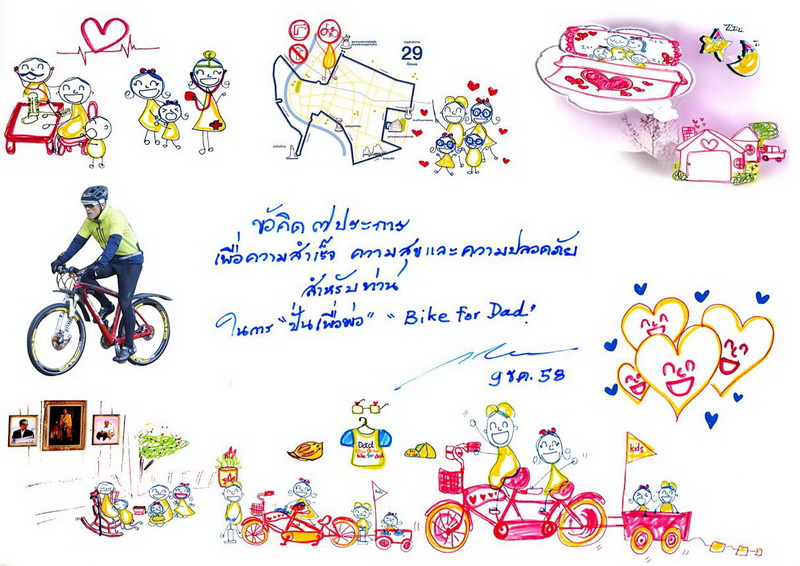 29
ข้อคิด ๗ ประการ
เพื่อความสำเร็จ ความสุขและความปลอดภัย
สำหรับท่าน
ในการ "ปั่นเพื่อพ่อ" "Bike for Dad"
9 ธค. 58
Dad
bike for dad
kids